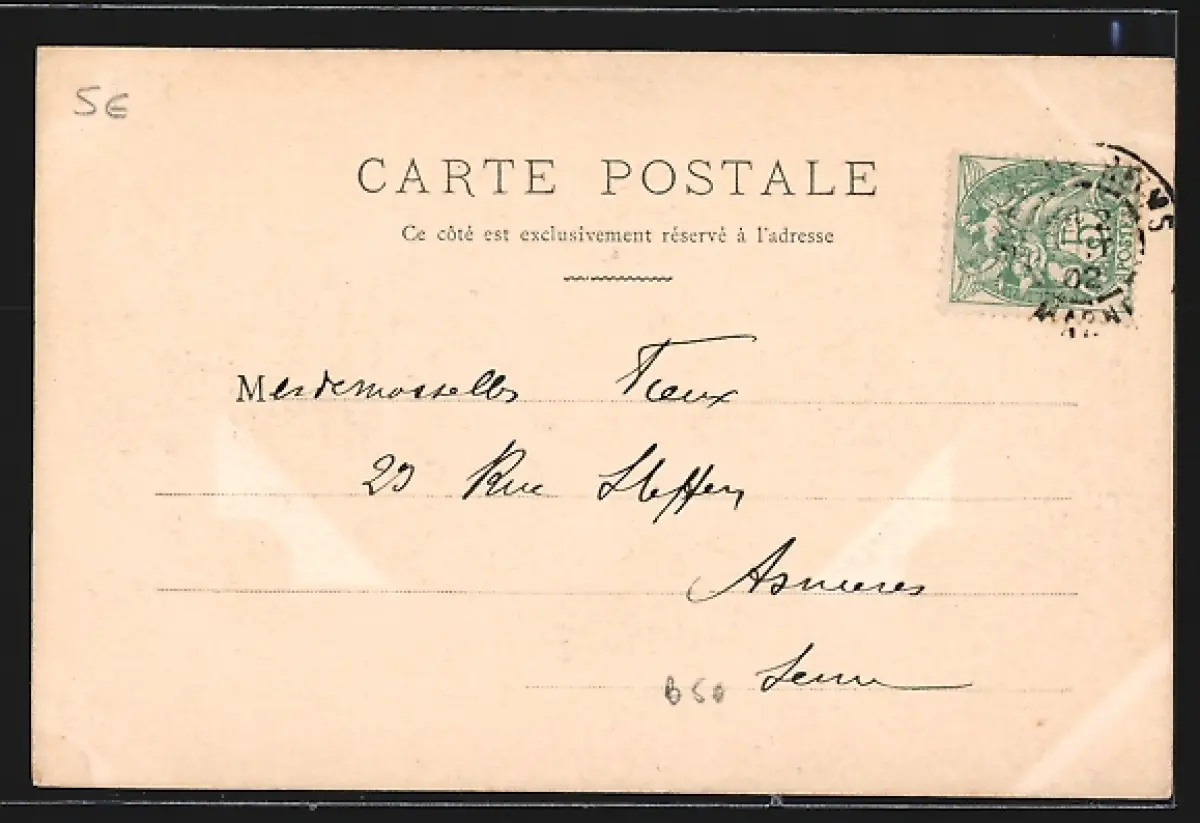 5€
CARTE POSTALE
Ce côté est exclusivement réservé à l'adresse
POSTES
02
MARNE
Mesdemoiselles Fieux
29 Rue Steffen
Asnieres
Seine
B50